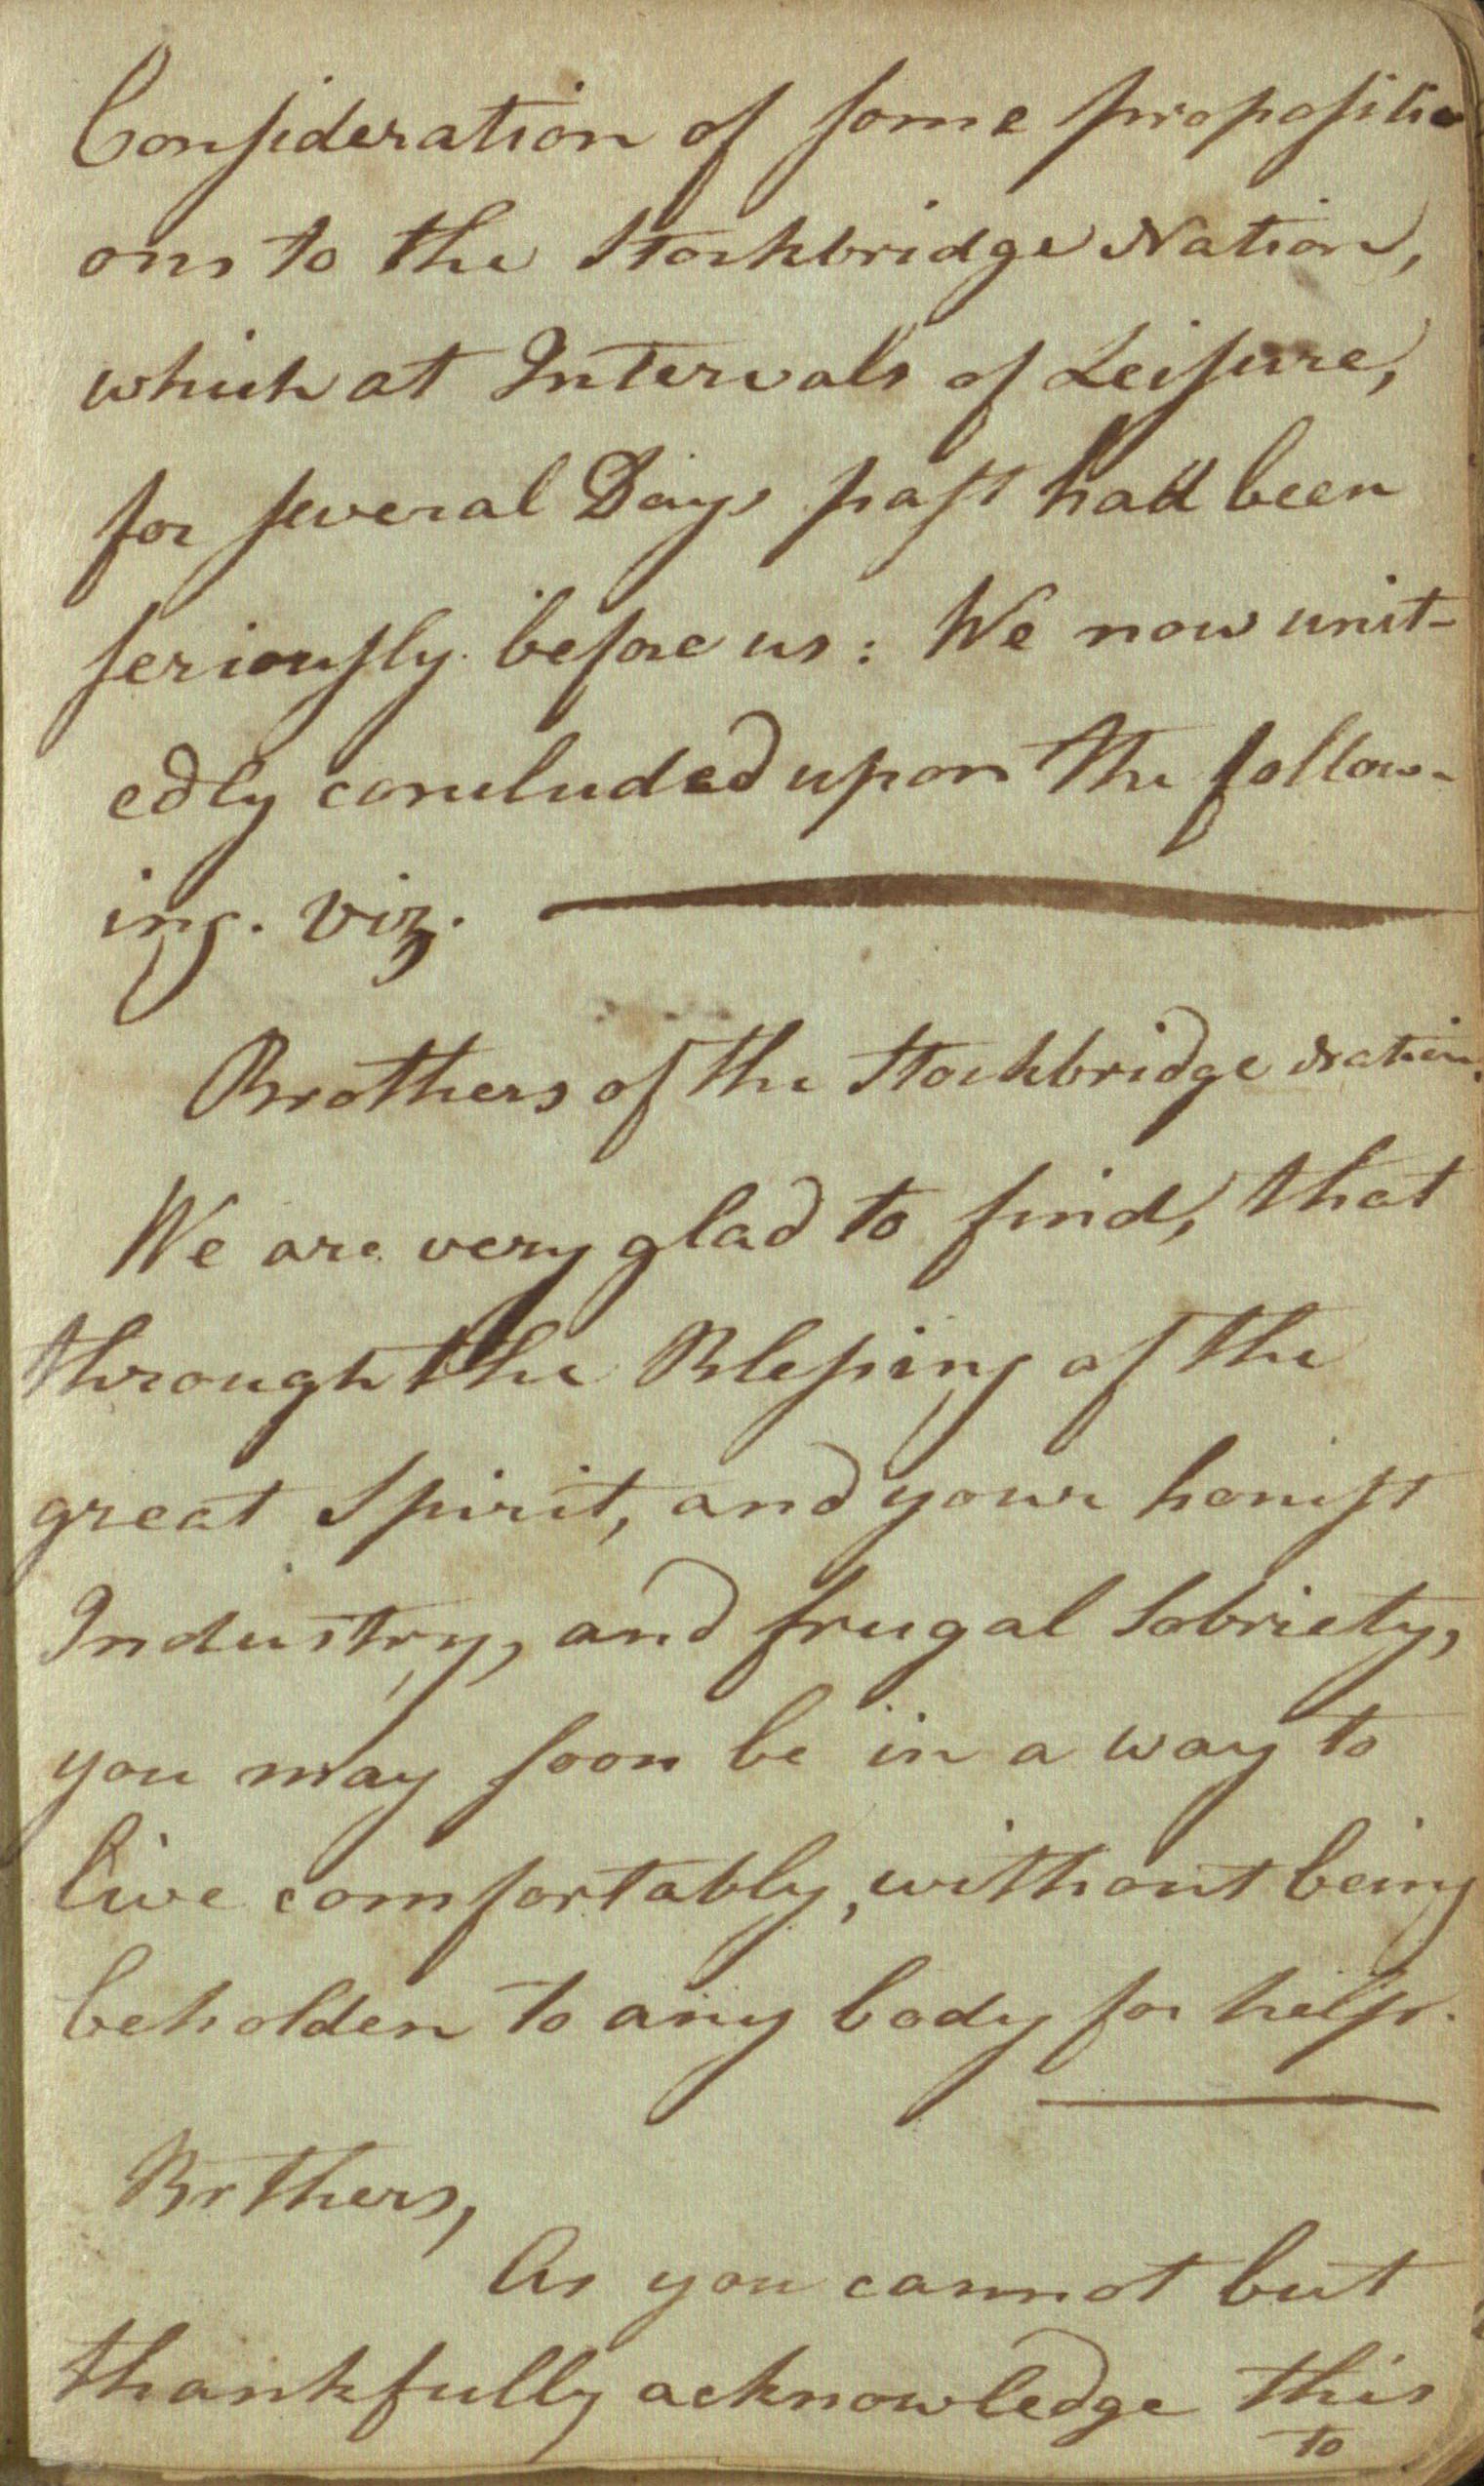 Consideration of some propositi
ons to the Stockbridge Nation,
which at Intervals of Leisure,
for several Days past had been
seriously before us: We now unit-
edly concluded upon the follow-
ing. viz.
Brothers of the Stockbridge Nation.
We are very glad to find, that
through the Blessing of the
great Spirit, and your honest
Industry, and frugal Sobriety,
you may soon be in a way to
live comfortably, without being
beholden to any body for help.
Brthers,
As you cannot but
thankfully acknowledge this
to